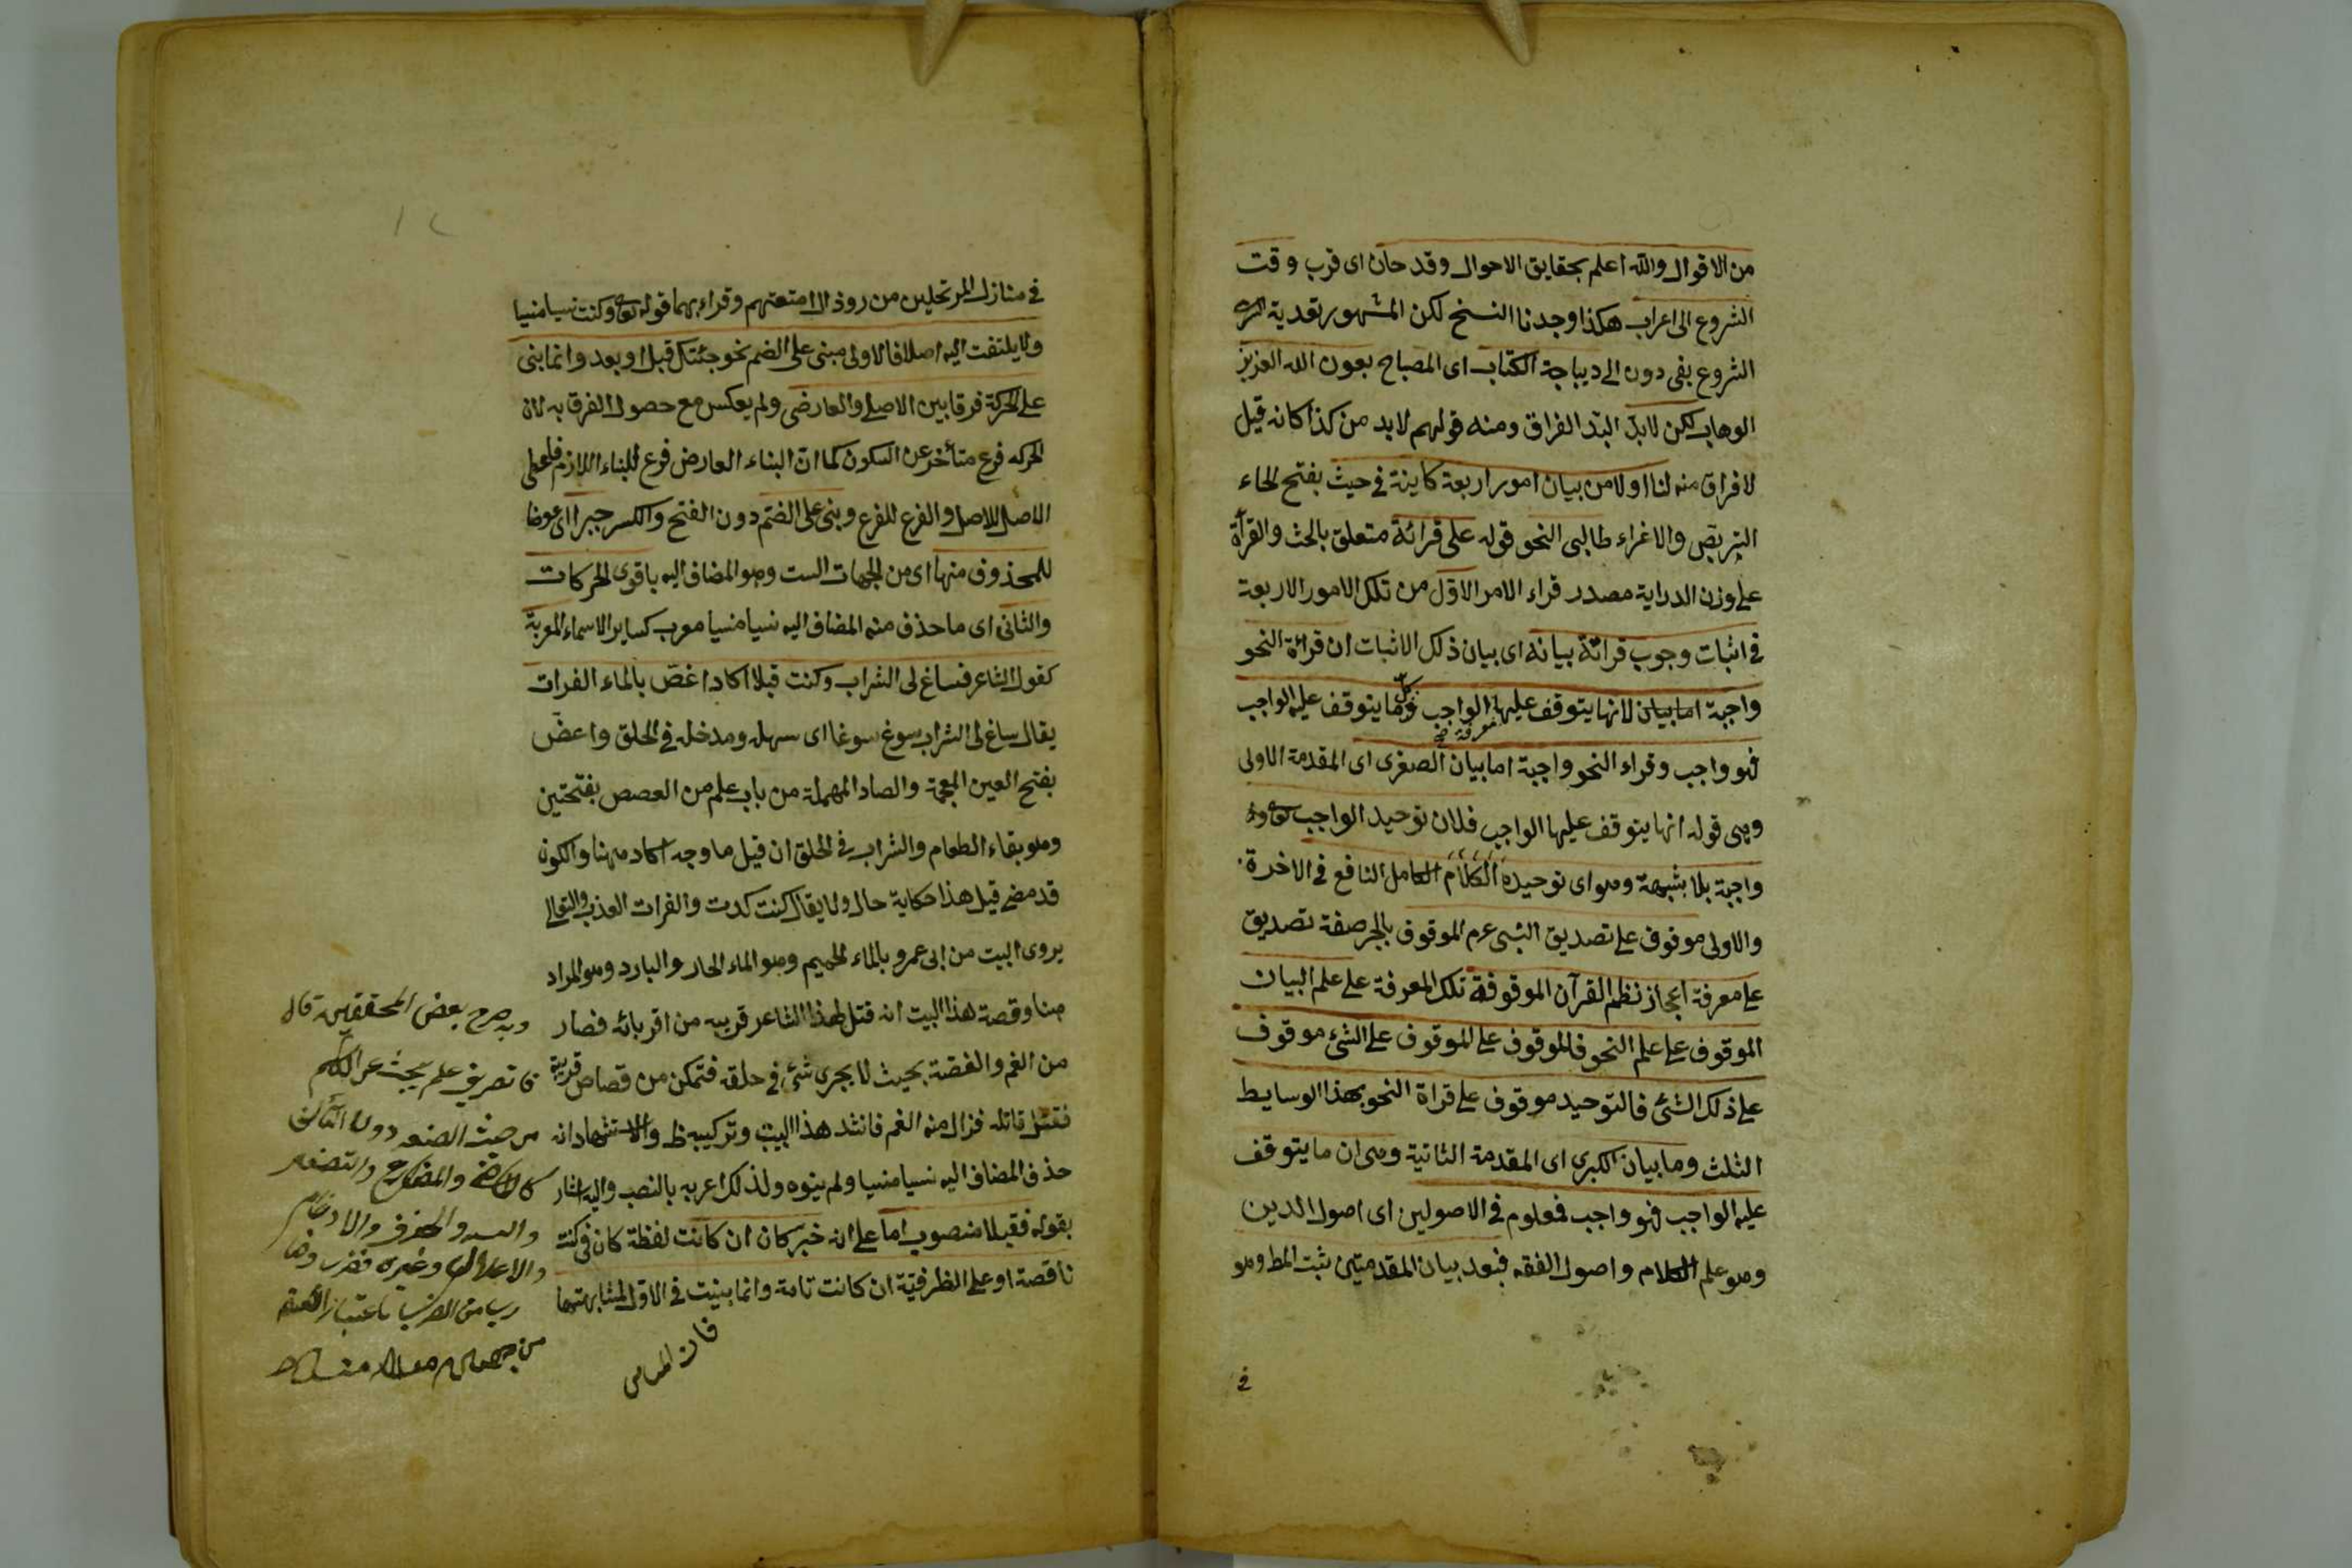 من الاقوال والله اعلم بحقايق الاحوال وقد حان اى قرب وقت
الشروع الى اعراب هكذا وجدنا النسخ لكن المشهور تعدية
الشروع بفى دون الى ديباجة الكتاب اى المصباح بعون الله العزيز
الوهاب لكن لابد البد الفراق ومنه قولهم لابد من كذا كانه قيل
لافراق منه لنا اولا من بيان امور اربعة كاينة فى حيث بفتح لحاء
التربص والاغراء طالبى النحو قوله على قرائة متعلق بالحث والقرأة
على وزن الدراية مصدر قراء الامر الاول من تلك الامور الاربعة
فى اثبات وجوب قرائة بيانه اى بيان ذلك الاثبات ان قرائة النحو
واجبة اما بيان لانها يتوقف عليها معرفة الواجب وكل ما يتوقف عليه الواجب
فهو واجب وقراء النحو واجبة اما بيان الصغرى اى المقدمة الاولى
وهى قوله انها يتوقف عليها الواجب فلان توحيد الواجب
واجبة بلا بشبهة وهو اى توحيده الكلام الكامل النافع فى الاخرة
والاولى موقوف على تصديق النبى عم الموقوف بالجر صفة تصديق
على معرفة اعجاز نظم القرآن الموقوفة تلك المعرفة على علم البيان
الموقوف على علم النحو فالموقوف على الموقوف على الشئ موقوف
على ذلك الشئ فالتوحيد موقوف على قراة النحو بهذا الوسايط
الثلث وما بيان الكبرى اى المقدمة الثانية وهى ان ما يتوقف
عليه الواجب فهو واجب فمعلوم فى الاصولين اى اصول الدين
وهو علم الكلام واصول الفقه فبعد بيان المقدمتين ثبت المط وهو
فى
فى منازل المرتحلين من روذال امتعتهم وقراء بهما قوله تع وكنت نسيا منسيا
ولا يلتفت اليه اصلا فالاولى مبنى على الضم نحو جئتك قبل او بعد وانما بنى
على الحركة فرقا بين الاصلى والعارضى ولم يعكس مع حصول الفرق به لان
الحركه فرع متأخر عن السكون كما ان البناء العارض فرع للبناء اللازم فاعطى
الاصل للاصل والفرع للفرع وبنى على الضم دون الفتح والكسر جبرا اى عوضا
للمحذوف منها اى من الجهات الست وهو المضاف اليه باقوى الحركات
والثانى اى ما حذف منه المضاف اليه نسيا منسيا معرب كساير الاسماء المعربة
كقول الشاعر فساغ لى الشراب وكنت قبلا اكاد اغص بالماء الفرات
يقال ساغ لى الشراب سوغ سوغا اى سهل ومدخله فى الحلق واعض
بفتح العين المعجمة والصاد المهملة من باب علم من العصص بفتحتين
وهو بقاء الطعام والشراب فى الحلق ان قيل ما وجه اكاد ههنا والكون
قد مضى قيل هذا حكاية حال ولا يقال كنت كدت والفرات العذب
يروى البيت من ابى عمرو بالماء الحميم وهو الماء الحار والبارد وهو المراد
هنا وقصة هذا البيت انه قتل لهذا الشاعر قريبه من اقربائه فصار
من الغم والغصة بحيث لا يجرى شئ فى حلقه فتمكن من قصاص قريبة
فقتل قاتله فزال منه الغم فانشد هذا البيت وتركيبه ظ والاستشهاد انه
حذف المضاف اليه نسيا منسيا ولم ينوه ولذلك اعربه بالنصب واليه اشار
بقوله فقبلا منصوب اما على انه خبر كان ان كانت لفظة كان فى كنت
ناقصة او على الظرفية ان كانت تامة وانما بنيت فى الاول لمشابهتها
وبه صرح بعض المحققين قال
تصريف علم يبحث عن الكلم
من حيث
والمضارع والتصغير
والحذف والادغام
والاعلال وغيره
باعتبار